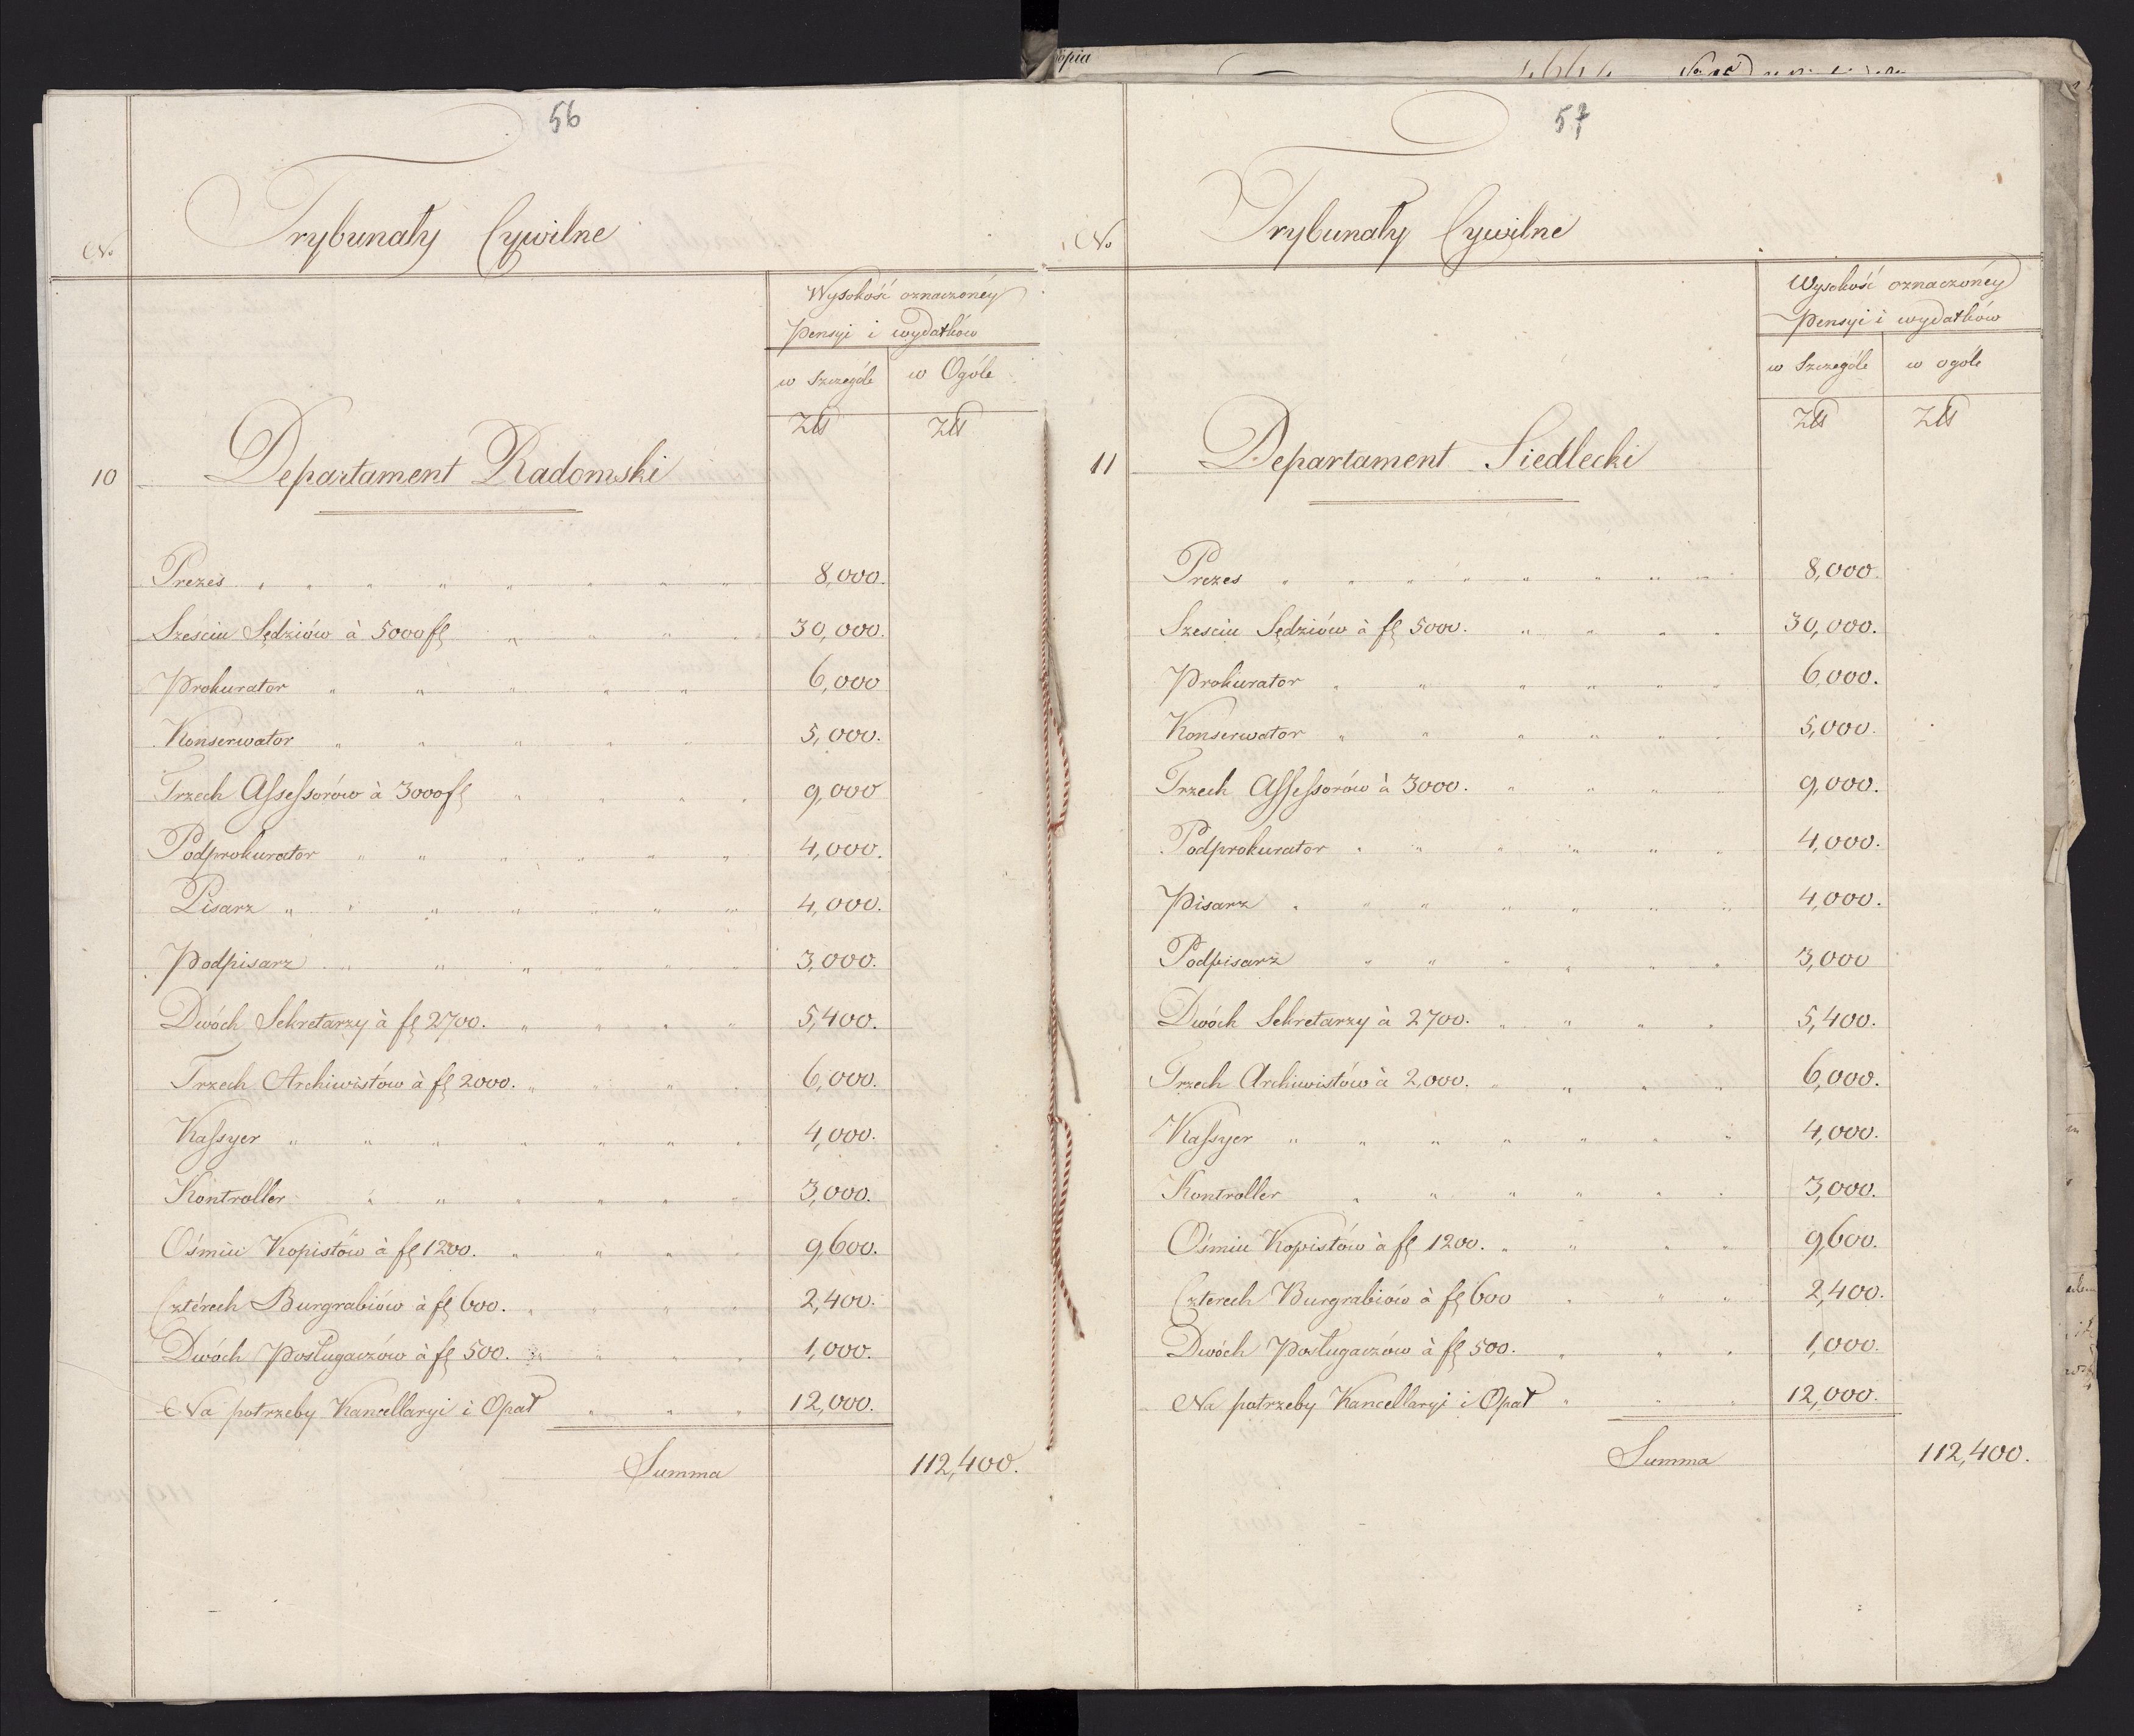 56
Trybunały Cywilne
No
Wysokość oznaczonéy
Pensyi i wydatków
w Szczególe
w Ogóle
Złł
Złł
10
Departament Radomski
Prezes 8,000.
Szesciu Sędziów à 5000 fl 30,000.
Prokurator 6,000
Konserwator 5,000.
Trzech Assessorów à 3000 fl 9,000
Podprokurator 4,000.
Pisarz 4,000.
Podpisarz 3,000.
Dwóch Sekretarzy à fl 2700. 5,400.
Trzech Archiwistów à fl 2000. 6,000.
Kassyer 4,000.
Kontroller 3,000.
Ośmiu Kopistów à fl 1200. 9,600.
Cztérech Burgrabiów à fl 600. 2,400.
Dwóch Posługaczów à fl 500. 1,000.
Na potrzeby Kancellaryi i Opał 12,000.
Summa 112,400.
opia
57
Trybunały Cywilne
No
Wysokość oznaczonéy
Pensyi i wydatków
w Szczególe
w ogóle
Złł
Złł
11
Departament Siedlecki
Prezes 8,000.
Szesciu Sędziów à fl 5000. 30,000.
Prokurator 6,000.
Konserwator 5,000.
Trzech Assessorów à 3000. 9,000.
Podprokurator 4,000.
Pisarz 4,000.
Podpisarz 3,000
Dwóch Sekretarzy à 2700. 5,400.
Trzech Archiwistów à 2,000. 6,000.
Kassyer 4,000.
Kontroller 3,000.
Ośmiu Kopistów à fl 1200. 9,600.
Czterech Burgrabiów à fl 600 2,400.
Dwóch Posługaczów à fl 500. 1,000.
Na potrzeby Kancellaryi i Opał 12,000.
Summa 112,400.